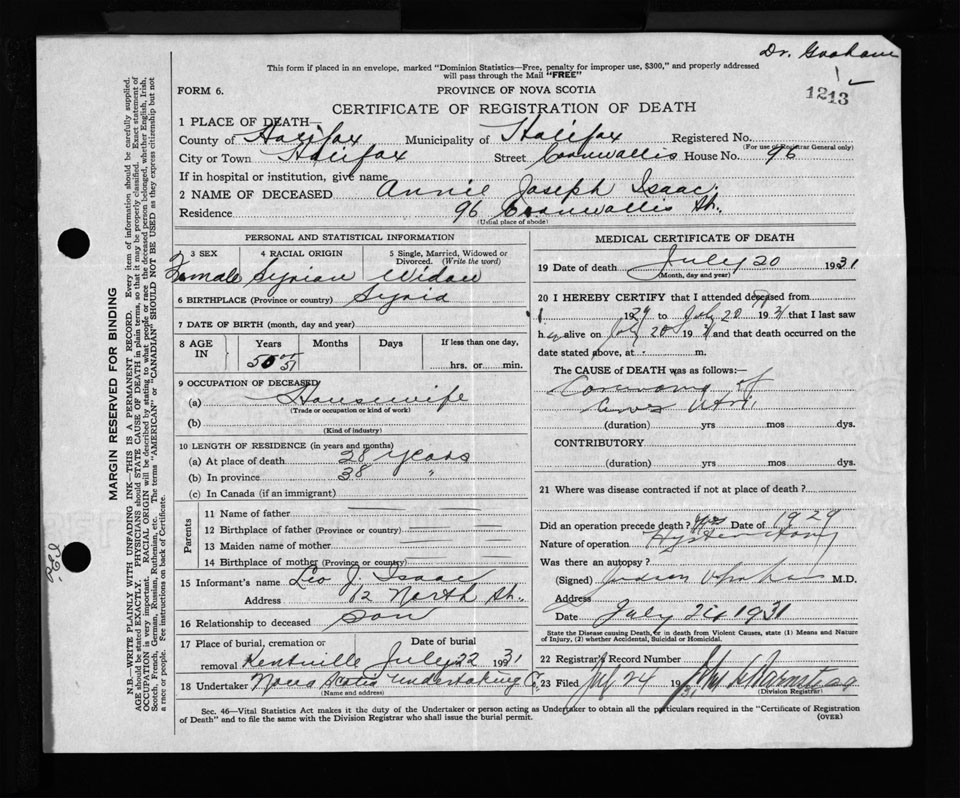 Dr. Graham
This form if placed in an envelope, marked "Dominion Statistics—Free, penalty for improper use, $300," and properly addressed
will pass through the Mail "FREE"
1213
FORM 6.
PROVINCE OF NOVA SCOTIA
CERTIFICATE OF REGISTRATION OF DEATH
1 PLACE OF DEATH—
County of Halifax Municipality of Halifax Registered No.
(For use of Registrar General only)
City or Town Halifax Street Cornwallis House No. 96
If in hospital or institution, give name
2 NAME OF DECEASED Annie Joseph Isaac.
Residence 96 Cornwallis St.
(Usual place of abode)
PERSONAL AND STATISTICAL INFORMATION
3 SEX 4 RACIAL ORIGIN 5 Single, Married, Widowed or Divorced. (Write the word)
Female Syrian Widow
6 BIRTHPLACE (Province or country) Syria
7 DATE OF BIRTH (month, day and year)
8 AGE IN Years Months Days If less than one day,
hrs. or min.
9 OCCUPATION OF DECEASED
(a) Housewife
(Trade or occupation or kind of work)
(b)
(Kind of industry)
10 LENGTH OF RESIDENCE (in years and months)
(a) At place of death 38 years
(b) In province 38 "
(c) In Canada (if an immigrant)
Parents
11 Name of father
12 Birthplace of father (Province or country)
13 Maiden name of mother
14 Birthplace of mother (Province or country)
15 Informant's name Leo J. Isaac
Address 12 North St.
16 Relationship to deceased Son
17 Place of burial, cremation or removal Kentville Date of burial July 22 1931
18 Undertaker Nova Scotia Undertaking Co.
(Name and address)
MEDICAL CERTIFICATE OF DEATH
19 Date of death July 20 1931
(Month, day and year)
20 I HEREBY CERTIFY that I attended deceased from
1929 to July 20 1931 that I last saw
h er alive on July 20 1931 and that death occurred on the
date stated above, at m.
The CAUSE OF DEATH was as follows:—
Carcinoma of
Cervix Uteri
(duration) yrs mos dys.
CONTRIBUTORY
(duration) yrs mos dys.
21 Where was disease contracted if not at place of death?
Did an operation precede death? Yes Date of 1929
Nature of operation Hysterectomy
Was there an autopsy?
(Signed) Judson Graham M.D.
Address
Date July 24 1931
State the Disease causing Death, or in death from Violent Causes, state (1) Means and Nature
of Injury, (2) whether Accidental, Suicidal or Homicidal.
22 Registrar's Record Number
23 Filed July 24 1931
(Division Registrar)
Sec. 46—Vital Statistics Act makes it the duty of the Undertaker or person acting as Undertaker to obtain all the particulars required in the "Certificate of Registration
of Death" and to file the same with the Division Registrar who shall issue the burial permit.
(OVER)
MARGIN RESERVED FOR BINDING
N.B.—WRITE PLAINLY WITH UNFADING INK—THIS IS A PERMANENT RECORD. Every item of information should be carefully supplied.
AGE should be stated EXACTLY. PHYSICIANS should STATE CAUSE OF DEATH in plain terms, so that it may be properly classified. Exact statement of
OCCUPATION is very important. RACIAL ORIGIN will be described by stating to what people or race the deceased person belonged, whether English, Irish,
Scotch, French, German, Russian, Ruthenian, etc. The terms "AMERICAN" or "CANADIAN" SHOULD NOT BE USED as they express citizenship but not
a race or people. Fee instructions on back of Certificate.